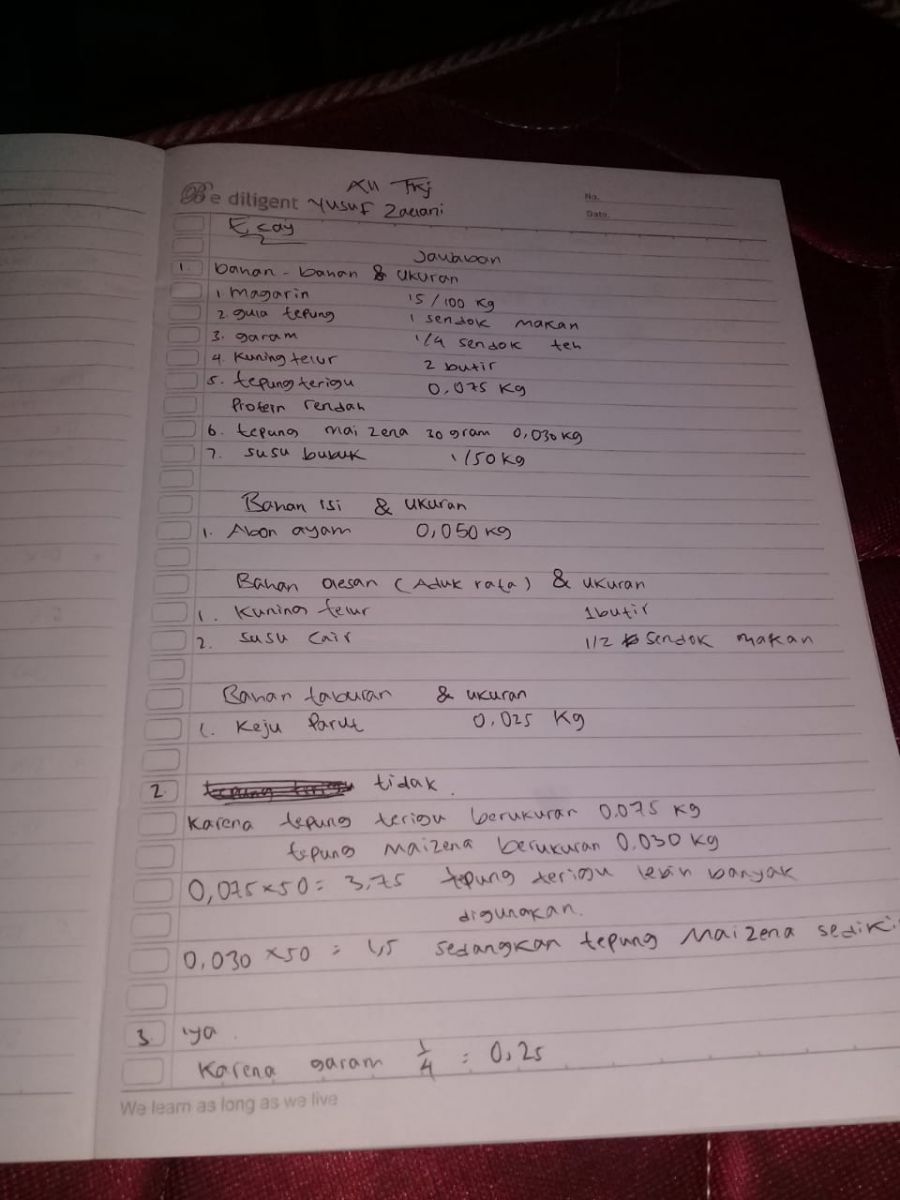 XII TKJ
Be diligent Yusuf Zaelani
No.
Date.
Esay
Jawaban
1. bahan - bahan & ukuran
1 magarin 15/100 kg
2. gula tepung 1 sendok makan
3. garam 1/4 sendok teh
4. Kuning telur 2 butir
5. tepung terigu 0,075 kg
Protein rendah
6. tepung mai zena 30 gram 0,030 kg
7. susu bubuk 1/50 kg
Bahan isi & ukuran
1. Abon ayam 0,050 kg
Bahan olesan (Aduk rata) & ukuran
1. Kuning telur 1 butir
2. susu cair 1/2 sendok makan
Bahan taburan & ukuran
1. Keju Parut 0.025 Kg
2. tidak.
Karena tepung terigu berukuran 0.075 kg
tepung Maizena berukuran 0.030 kg
0,075 x 50 = 3,75 tepung terigu lebih banyak
digunakan.
0.030 x 50 = 1,5 sedangkan tepung Maizena
3. iya.
Karena garam 1/4 = 0,25
We learn as long as we live